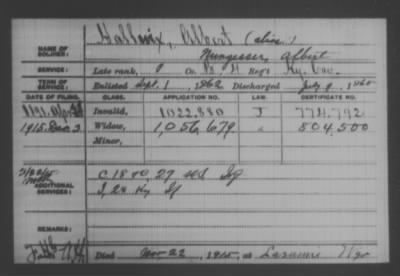 Hallwix, Albert (alias)
NAME OF SOLDIER: Nungesser, Albert
SERVICE: Late rank, Co. M Reg't Ky. Cav.
TERM OF SERVICE: Enlisted Sept. 1, 1862 Discharged July 9, 1865
DATE OF FILING. CLASS. APPLICATION NO. LAW. CERTIFICATE NO.
1891 Invalid, 1022,880 J 774,792
1915 Dec 2 Widow, 1,056,679 " 504,500
Minor,
ADDITIONAL SERVICES: C 18 27 US Inf
I, 28 Ky If
REMARKS:
Died Nov 22, 1915, at Wyo